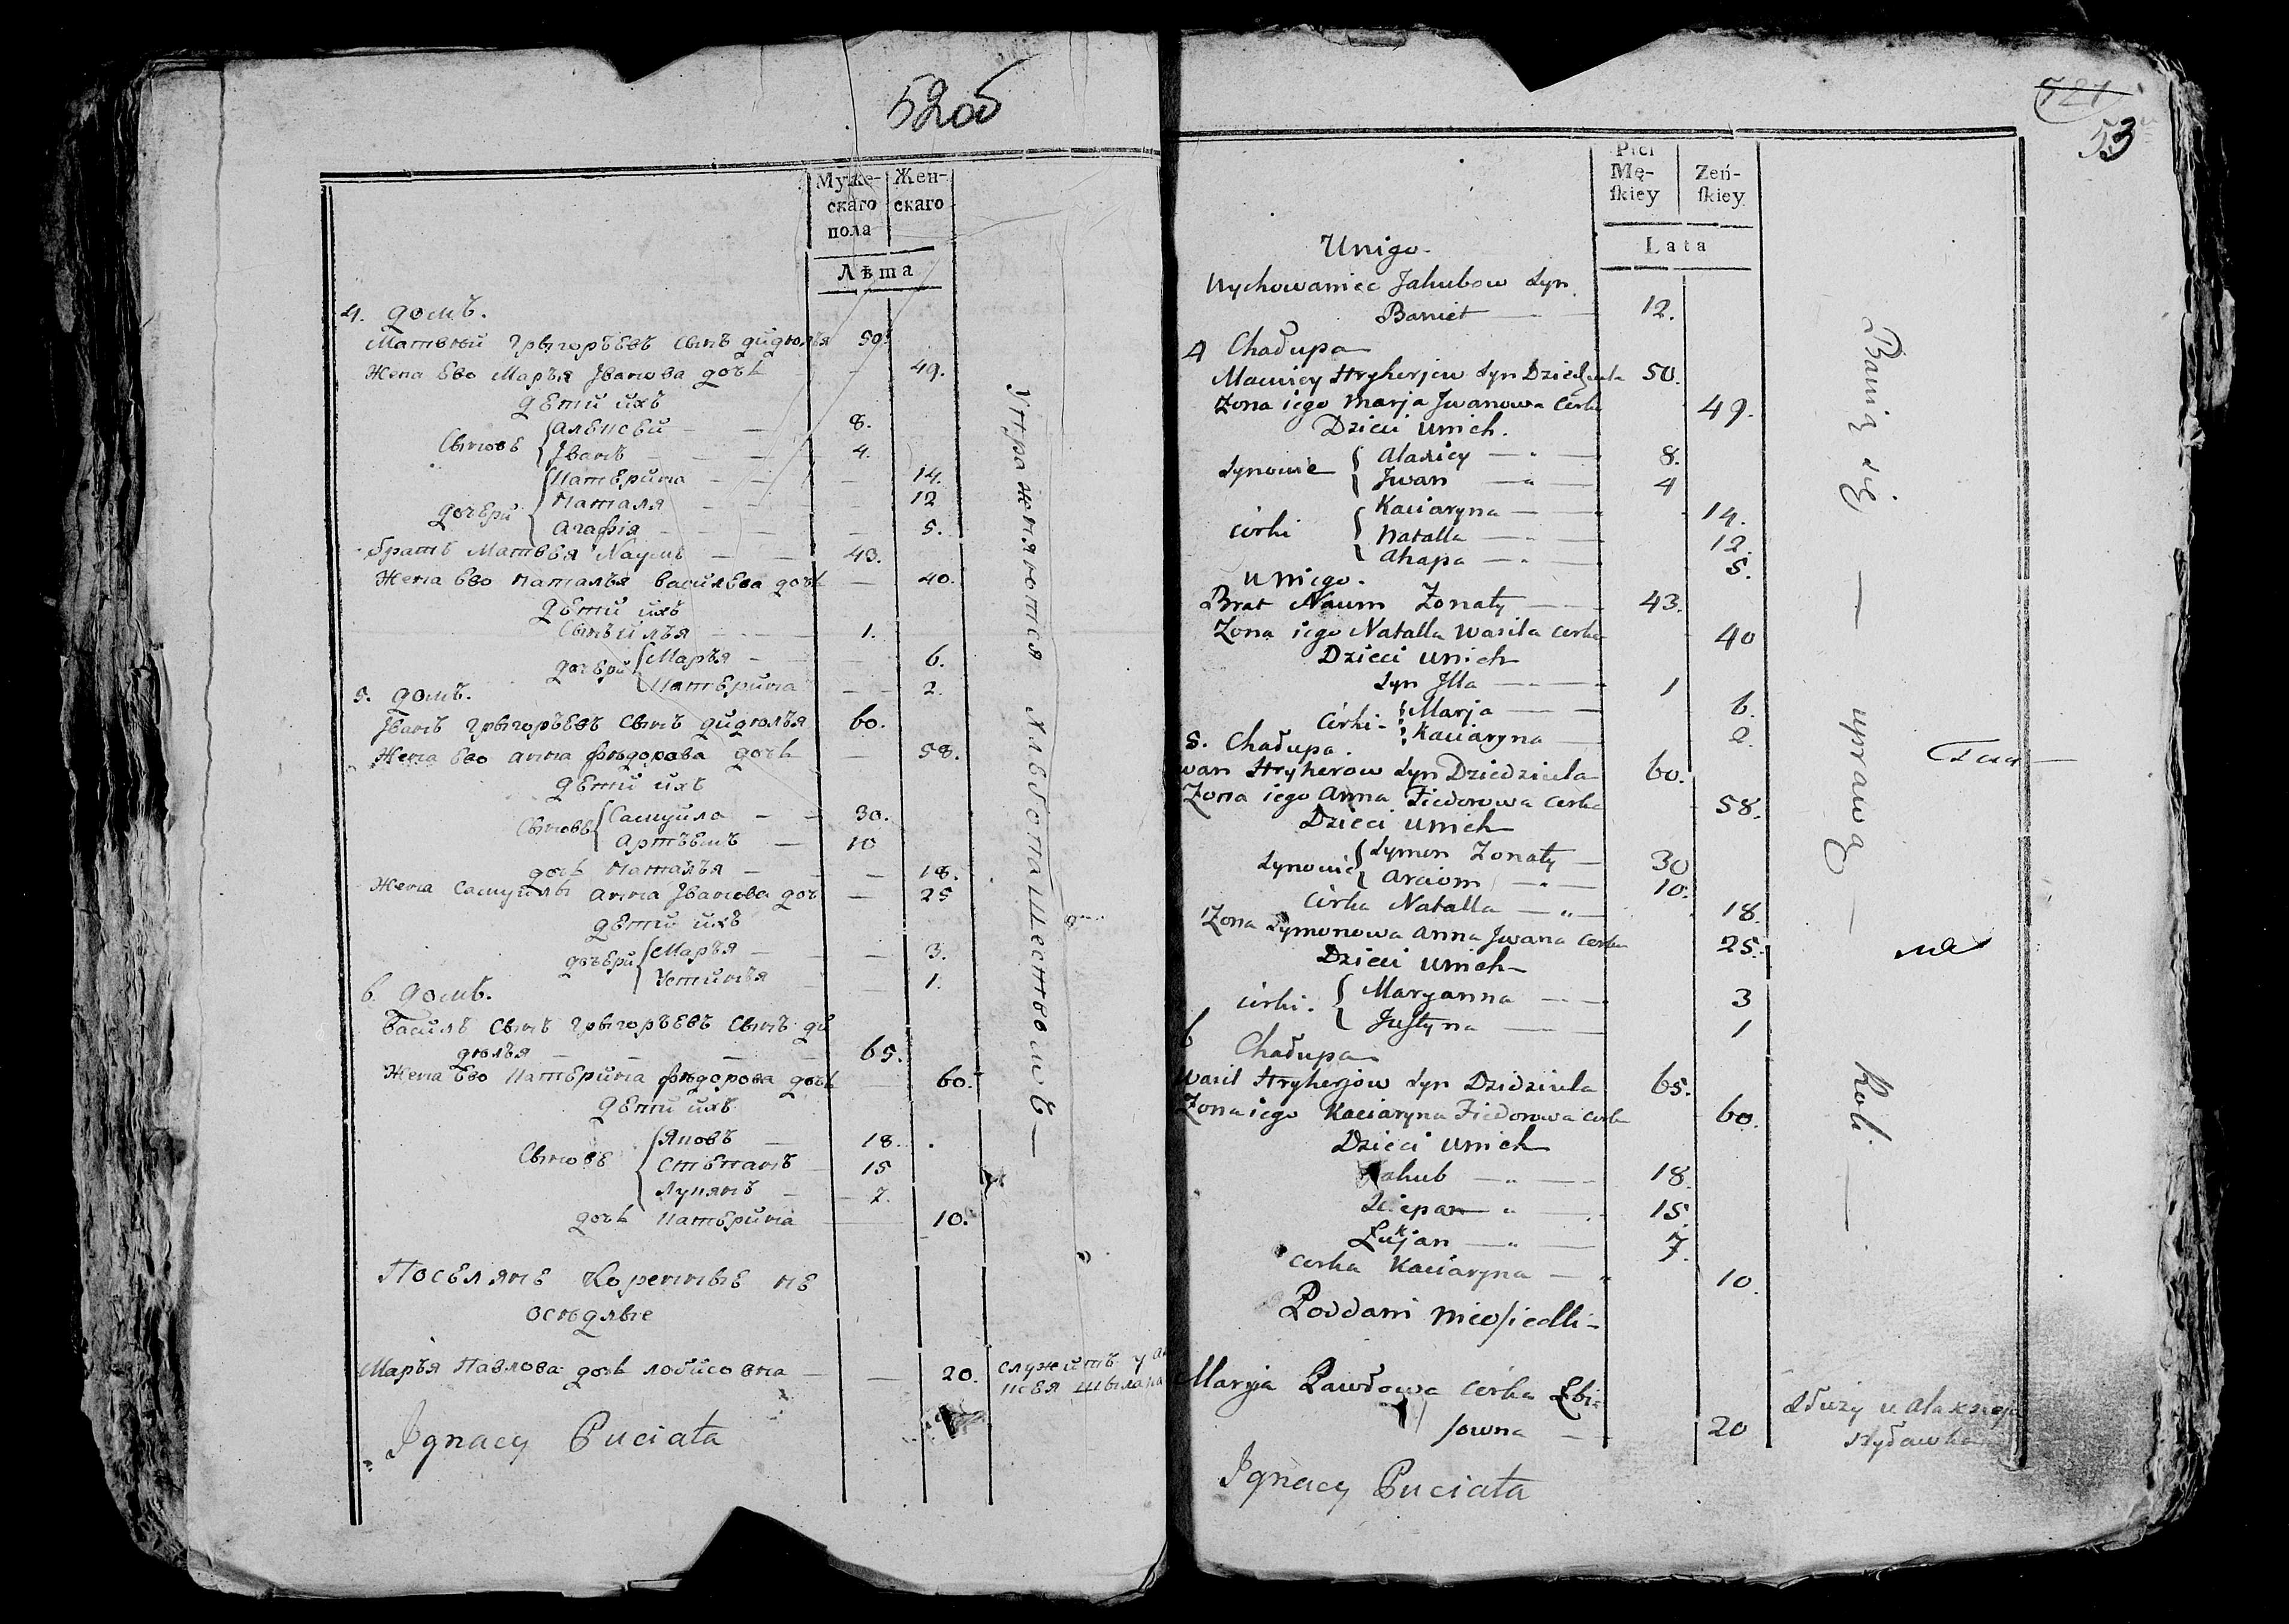 52 об
Муже-
скаго
пола
Жен-
скаго
Лѣта
4. домъ.
Матвѣй Грыгорьевъ сынъ дидюля 50.
Жена Ево Марья Iванова дочь — 49.
дѣти ихъ
Сынове Алексей — 8.
Iванъ — 4.
дочери Катерина — 14.
Наталя — 12
Агафiя — 5.
братъ Матвея Наумъ — 43.
Жена Ево Наталья васильева дочь — 40.
дети ихъ
Сынъ илья — 1.
дочери Марья — 6.
Катерина — 2.
5. домъ.
Iванъ Грыгорьевъ Сынъ дидюлья 60.
Жена Ево анна фѣдорова дочь — 58.
дети ихъ
Сынове Самуйло — 30.
Артъемъ — 10
дочь Наталья — 18.
Жена Самуйлы анна Iванова доч — 25
дети ихъ
дочери Марья — 3.
Устинья 1.
6. домъ.
василь Сынъ Грыгорьевъ Сынъ ди
дюлья — 65.
Жена Ево Катерина фѣдорова дочь 60.
дети ихъ
Сынове Яковъ — 18.
Степанъ 15
Лукянъ — 7.
дочь Катерина — 10.
Поселяне Коренные не
оседлые
Марья Павлова дочь лобисовна — 20. служитъ у
Ignacy Puciata
Упражняются Хлебопашествомъ —
53
Płci
Mę-
ſkiey
Żeń-
ſkiey
Lata
Unigo.
Wychowaniec Jakubow Syn
12.
4 Chałupa
Maciey Hryherjew Syn Dziedziula 50.
Zona iego Marja Jwanowa Corka 49.
Dzieci unich.
Synowie Alaxiey — 8.
Jwan — 4
Córki Kaciaryna — 14.
Natalla — 12.
Ahapa — 5.
unigo.
Brat Naum Zonaty — 43.
Zona iego Natalla Wasila Corka 40
Dzieci unich
Syn Jlla — 1
Córki - Marja — 6.
Kaciaryna — 2.
5. Chałupa.
wan Hryherow Syn Dziedziula 60.
Zona iego Anna Fiedorowa Corka 58.
Dzieci unich
Synowie Symon Zonaty — 30
Arciom — 10.
Córka Natalla — 18.
Zona Symonowa Anna Jwana Corka 25.
Dzieci unich
Córki. Maryanna — 3
Juſtyna — 1
6 Chałupa
Wasil Hryherjow Syn Dzidziula 65.
Zona iego Kaciaryna Fiedorowa Corka 60.
Dzieci unich
Jakub — 18.
Sciepan — 15.
Łukjan — 7.
Corka Kaciaryna — 10.
Poddani nieoſiedli -
Maryia Pawłowa Córka Łbi-
ſowna — 20
Służy u Alaxieja
Ignacy Puciata
Bawią się — uprawą — Roli —